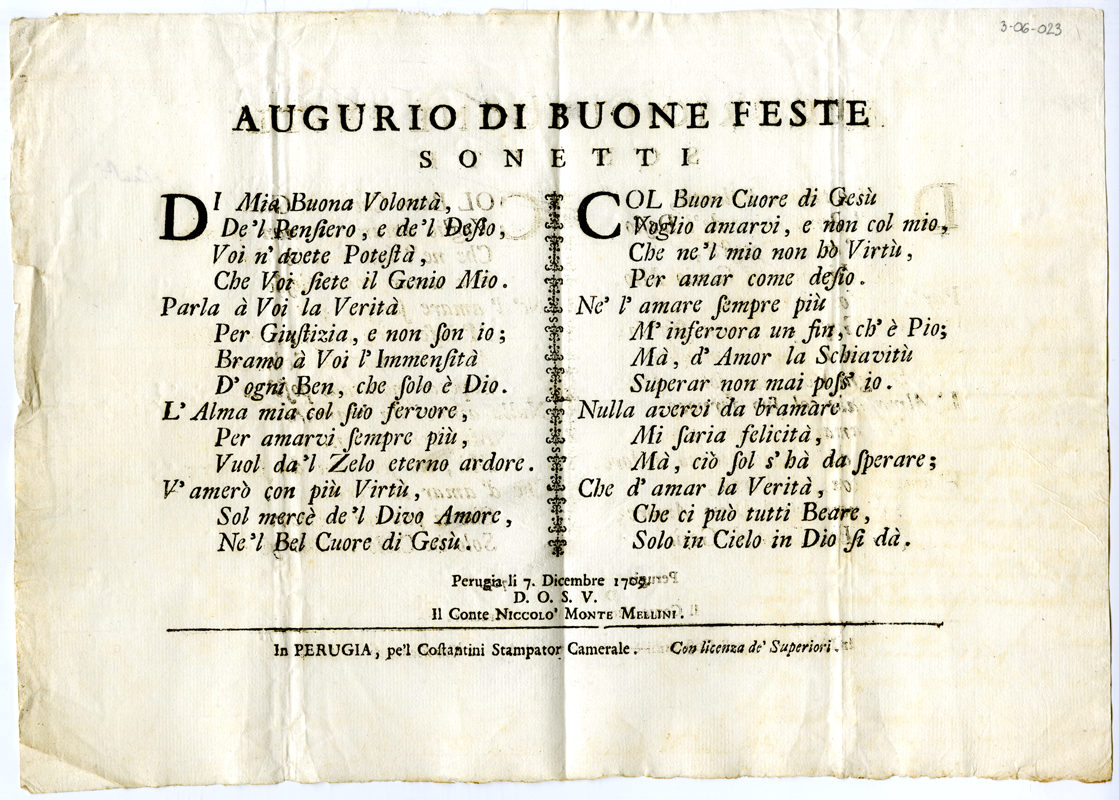 3-06-023
AUGURIO DI BUONE FESTE
SONETTI.
DI Mia Buona Volontà,
De'l Pensiero, e de'l Desio,
Voi n'avete Potestà,
Che Voi siete il Genio Mio.
Parla à Voi la Verità
Per Giustizia, e non son io;
Bramo à Voi l'Immensità
D'ogni Ben, che solo è Dio.
L'Alma mia col suo fervore,
Per amarvi sempre più,
Vuol da'l Zelo eterno ardore.
V'amerò con più Virtù,
Sol mercè de'l Divo Amore,
Ne'l Bel Cuore di Gesù.
COL Buon Cuore di Gesù
Voglio amarvi, e non col mio,
Che ne'l mio non hò Virtù,
Per amar come desio.
Ne' l'amare sempre più
M'infervora un fin, ch'è Pio;
Mà, d'Amor la Schiavitù
Superar non mai poss'io.
Nulla avervi da bramare
Mi saria felicità,
Mà, ciò sol s'hà da sperare;
Che d'amar la Verità,
Che ci può tutti Beare,
Solo in Cielo in Dio si dà.
Perugia li 7. Dicembre
D. O. S. V.
Il Conte NICCOLO' MONTE MELLINI.
In PERUGIA, pe'l Costantini Stampator Camerale. Con licenza de' Superiori.